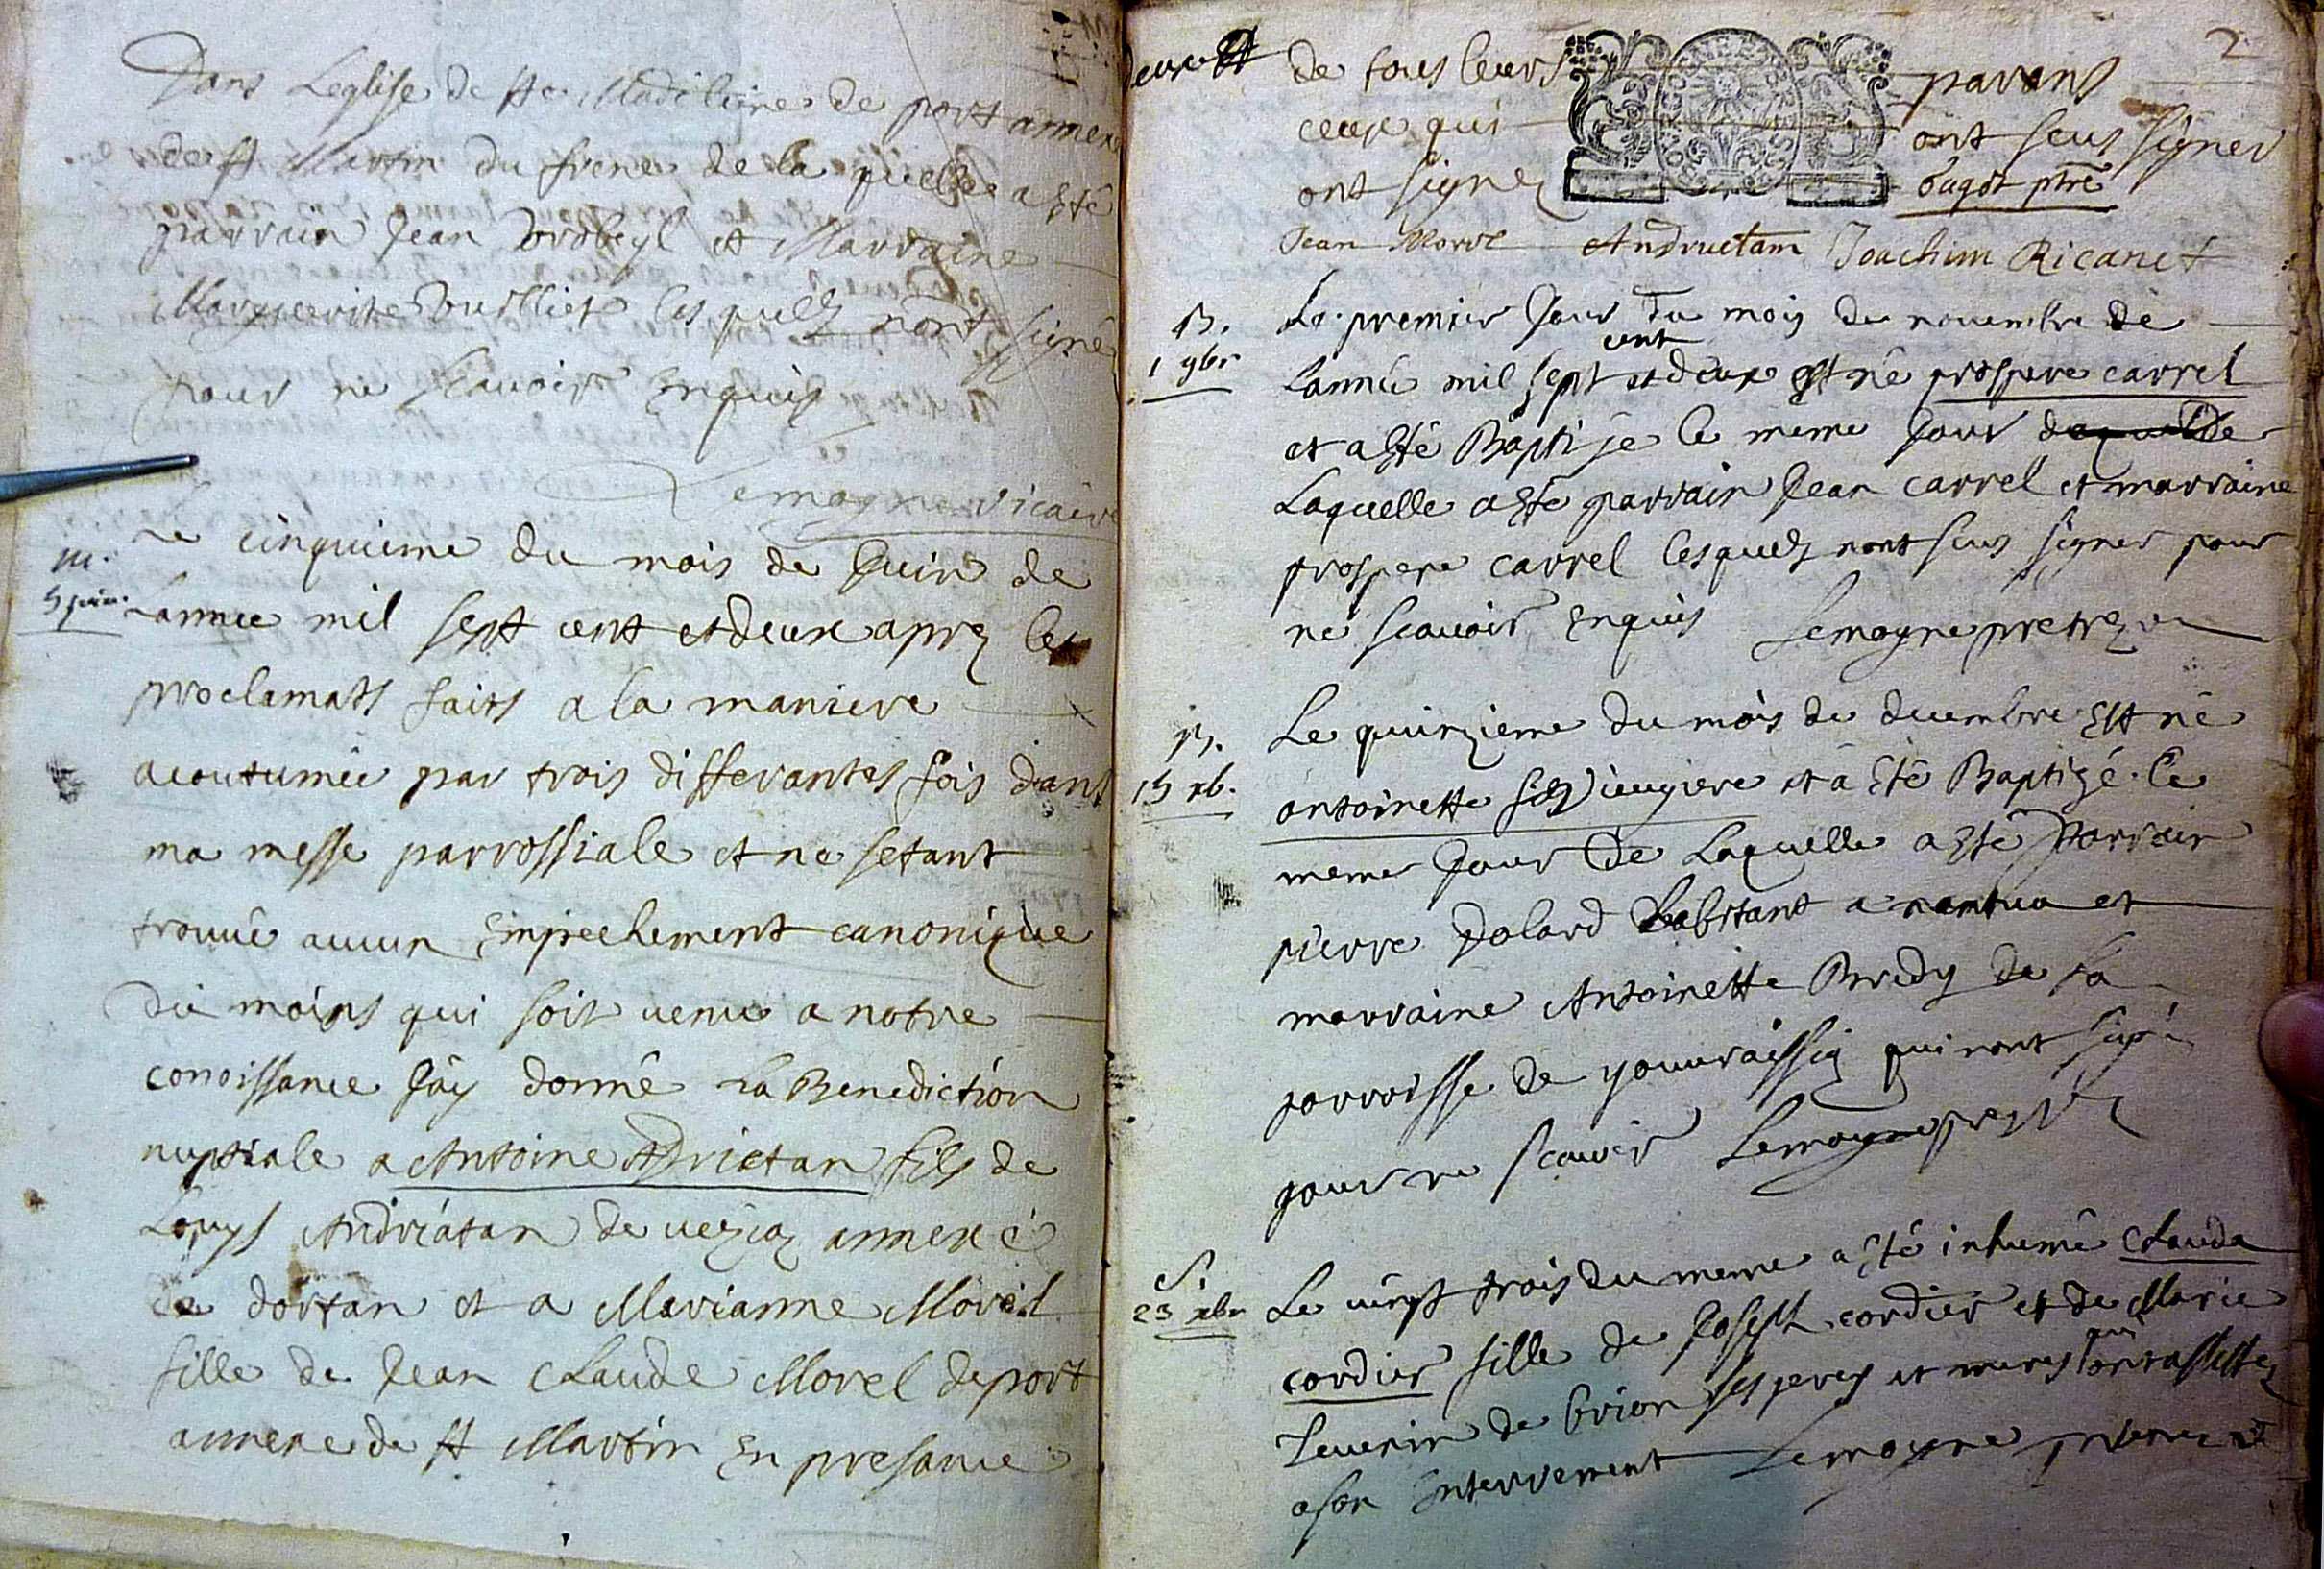 Dans Leglise de Ste Madileine de port annexe
de st Martin du frene de la quelle a esté
parrain Jean et Marraine
Marguerite lesquelz nont signé
pour ne scavoir Enquis
Lemoyne vicaire
m.
5 juin.
Le cinquieme du mois de Juin de
Lannee mil sept cent et deux aprez les
proclamats faits a la maniere
acoutumée par trois differantes fois dans
ma messe parrossiale et ne setant
trouvé aucun Empechement canonique
du moins qui soit venu a notre
conoissance Jay donné La Benediction
nuptiale a Antoine fils de
Louys Andriétan de annexe
de dortan et a Marianne Morel
fille de Jean Claude Morel de port
annexe de st Martin En presance
2
de tous leurs parens
ceux qui ont seus signer
ont signez bugot ptre
Jean Morel Andruetam Joachim Ricanet
B.
1 9br
Le premier Jour du mois de novembre de
Lannée mil sept cent et deux est né prospere carrel
et a esté Baptisé le meme Jour
Laquelle a esté parrain Jean carrel et marraine
prospere carrel lesquelz nont seus signer pour
ne scavoir Enquis Lemoyne pretre
B.
15 xb.
Le quinzieme du mois de decembre Est né
antoinette et a Eté Baptizé le
meme Jour de Laquelle a esté Parrain
pierre Polard habitant a nantua et
marraine Antoinette Bredy de la
parroisse de qui nont signé
pour ne scavoir Lemoyne
S.
23 xbr
Le vingt trois du meme a esté inhumé Clauda
cordier fille de Joseph cordier et de Marie
Tevenin de brion ses peres et meres qui ont assistez
a son Enterrement Lemoyne